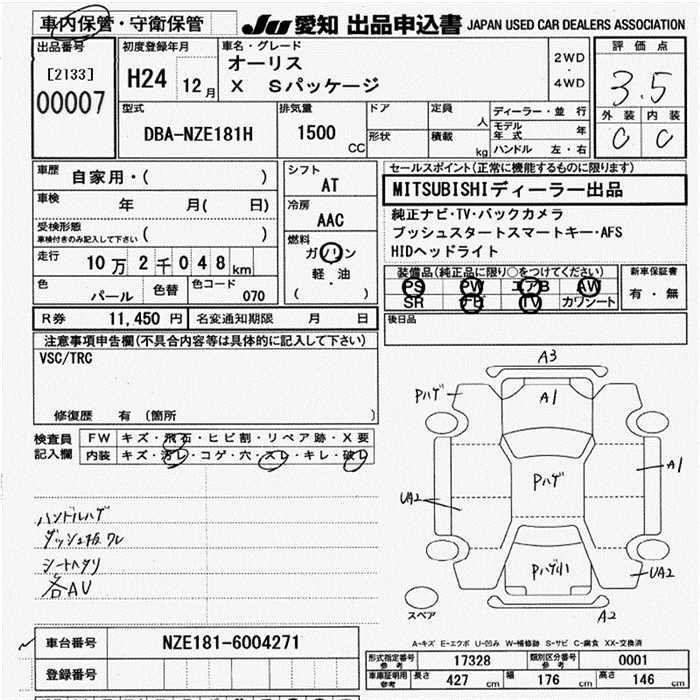 車内保管・守衛保管
JU 愛知 出品申込書 JAPAN USED CAR DEALERS ASSOCIATION
出品番号
[2133]
00007
初度登録年月
H24 12月
車名・グレード
オーリス
X Sパッケージ
2WD
・
4WD
評価点
3.5
外装 内装
C C
型式
DBA-NZE181H
排気量
1500 CC
ドア
形状
定員 人
積載 kg
ディーラー・並行
モデル年式 年
ハンドル 左・右
車歴 自家用・( )
車検 年 月( 日)
受検形態
車検付きのみ記入して下さい ( )
走行 10万2千048km
色 パール 色替 色コード 070
シフト
AT
冷房
AAC
燃料
ガソリン
軽・油
( )
セールスポイント(正常に機能するものに限ります)
MITSUBISHIディーラー出品
純正ナビ・TV・バックカメラ
プッシュスタートスマートキー・AFS
HIDヘッドライト
装備品(純正品に限り○をつけてください)
PS PW エアB AW
SR ナビ TV カワシート
新車保証書
有・無
後日品
R券 11,450円 名変通知期限 月 日
注意事項申告欄(不具合内容等は具体的に記入して下さい)
VSC/TRC
修復歴 有 (箇所 )
検査員記入欄
FW キズ・飛石・ヒビ割・リペア跡・X要
内装 キズ・汚レ・コゲ・穴・スレ・キレ・破レ
ハンドルハゲ
ダッシュ板ワレ
シートヘタリ
各AU
A3
Pハゲ
A1
A1
Pハゲ
UA2
Pハゲ小
UA2
A2
スペア
A-キズ E-エクボ U-凹み W-補修跡 S-サビ C-腐食 XX-交換済
車台番号 NZE181-6004271
登録番号
形式指定番号
参考
17328
類別区分番号
参考
0001
車庫証明用
参考
長さ 427 cm 幅 176 cm 高さ 146 cm